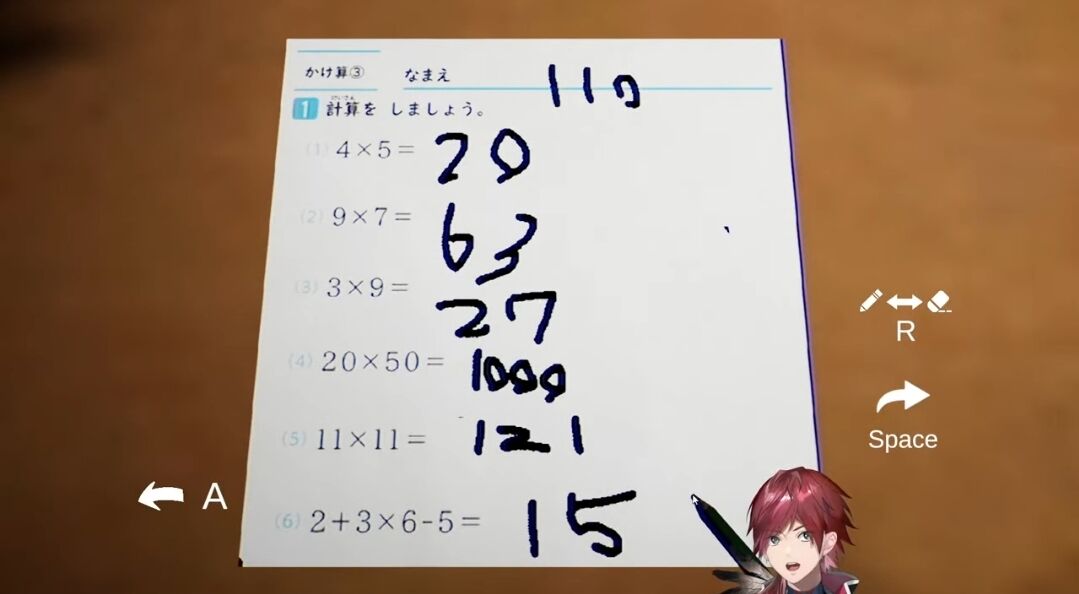 かけ算③ なまえ 110
1 計算を しましょう。
けいさん
(1) 4×5= 20
(2) 9×7= 63
(3) 3×9= 27
(4) 20×50= 1000
(5) 11×11= 121
(6) 2+3×6-5= 15
R
Space
A